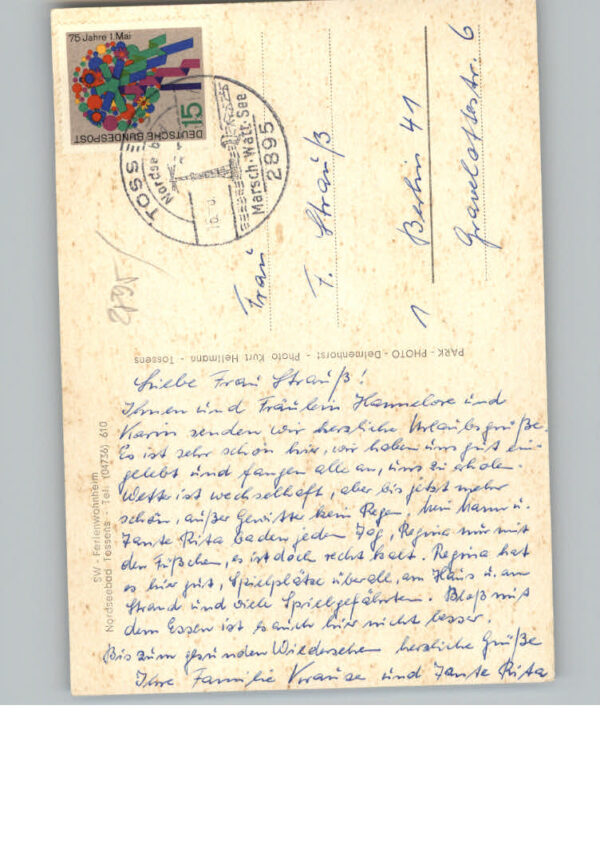 75 Jahre 1. Mai
15
DEUTSCHE BUNDESPOST
TOSSE
Nordse b
Marsch · Watt · See
2895
Frau
F. Strauß
1 Berlin 41
Gravelottestr. 6
PARK - PHOTO - Delmenhorst - Photo Kurt Hellmann - Tossens
SW - Ferienwohnheim
Nordseebad Tossens - Tel. (04736) 610
Liebe Frau Strauß!
Ihnen und Fräulein Hannelore und
Karin senden wir herzliche Urlaubsgrüße.
Es ist sehr schön hier, wir haben uns gut ein-
gelebt und fangen alle an, uns zu erholen.
Wetter ist wechselhaft, aber bis jetzt mehr
schön, außer Gewitter kein Regen, mein Mann u.
Tante Rita baden jeden Tag, Regina nur mit
den Füßchen, es ist doch recht kalt. Regina hat
es hier gut, Spielplätze überall, am Haus u. am
Strand und viele Spielgefährten. Bloß mit
dem Essen ist es auch hier nicht besser.
Bis zum gesunden Wiedersehen herzliche Grüße
Ihre Familie Krause und Tante Rita